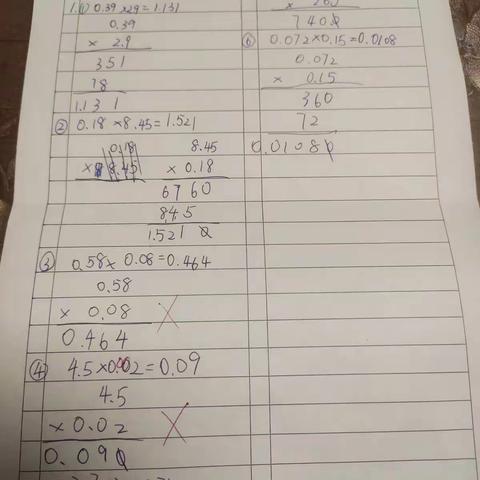 1.① 0.39×29=1.131
0.39
× 2.9
351
78
1.131
② 0.18×8.45=1.521
0.18
× 8.45
8.45
× 0.18
6760
845
1.5210
③ 0.58×0.08=0.464
0.58
× 0.08
0.464
④ 4.5×0.02=0.09
4.5
× 0.02
0.090
7400
⑥ 0.072×0.15=0.0108
0.072
× 0.15
360
72
0.01080